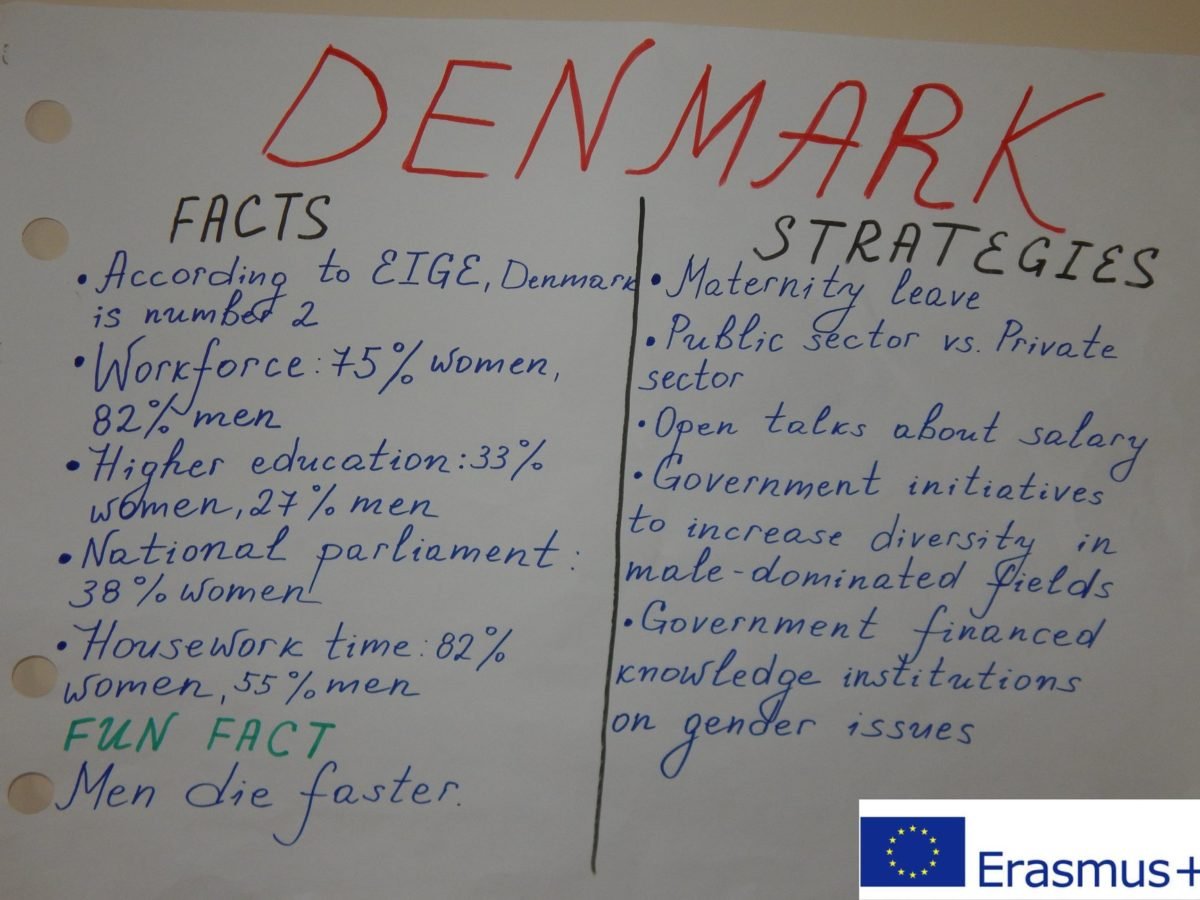 DENMARK
FACTS
• According to EIGE, Denmark
is number 2
• Workforce: 75% women,
82% men
• Higher education: 33%
women, 27% men
• National parliament:
38% women
• Housework time: 82%
women, 55% men
FUN FACT
Men die faster.
STRATEGIES
• Maternity leave
• Public sector vs. Private
sector
• Open talks about salary
• Government initiatives
to increase diversity in
male-dominated fields
• Government financed
knowledge institutions
on gender issues
Erasmus+